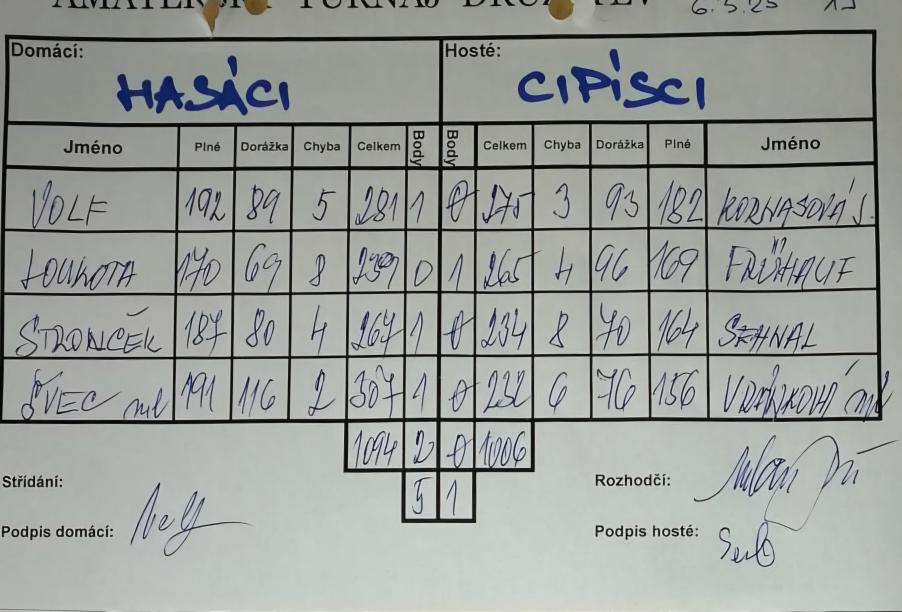 AMATÉRSKÝ TURNAJ DRUŽSTEV 6.3.25
Domácí: HASÁCI Hosté: CIPÍSCI
Jméno Plné Dorážka Chyba Celkem Body Body Celkem Chyba Dorážka Plné Jméno
VOLF 192 89 5 281 1 0 275 3 93 182 KORNASOVÁ J.
LOUKOTA 170 69 8 239 0 1 265 4 96 169 FRÜHAUF
STRONČEK 187 80 4 267 1 0 234 8 70 164 SEHNAL
ŠVEC ml 191 116 2 307 1 0 232 6 76 156 ml
1094 2 0 1006
5 1
Střídání: Rozhodčí:
Podpis domácí: Podpis hosté: